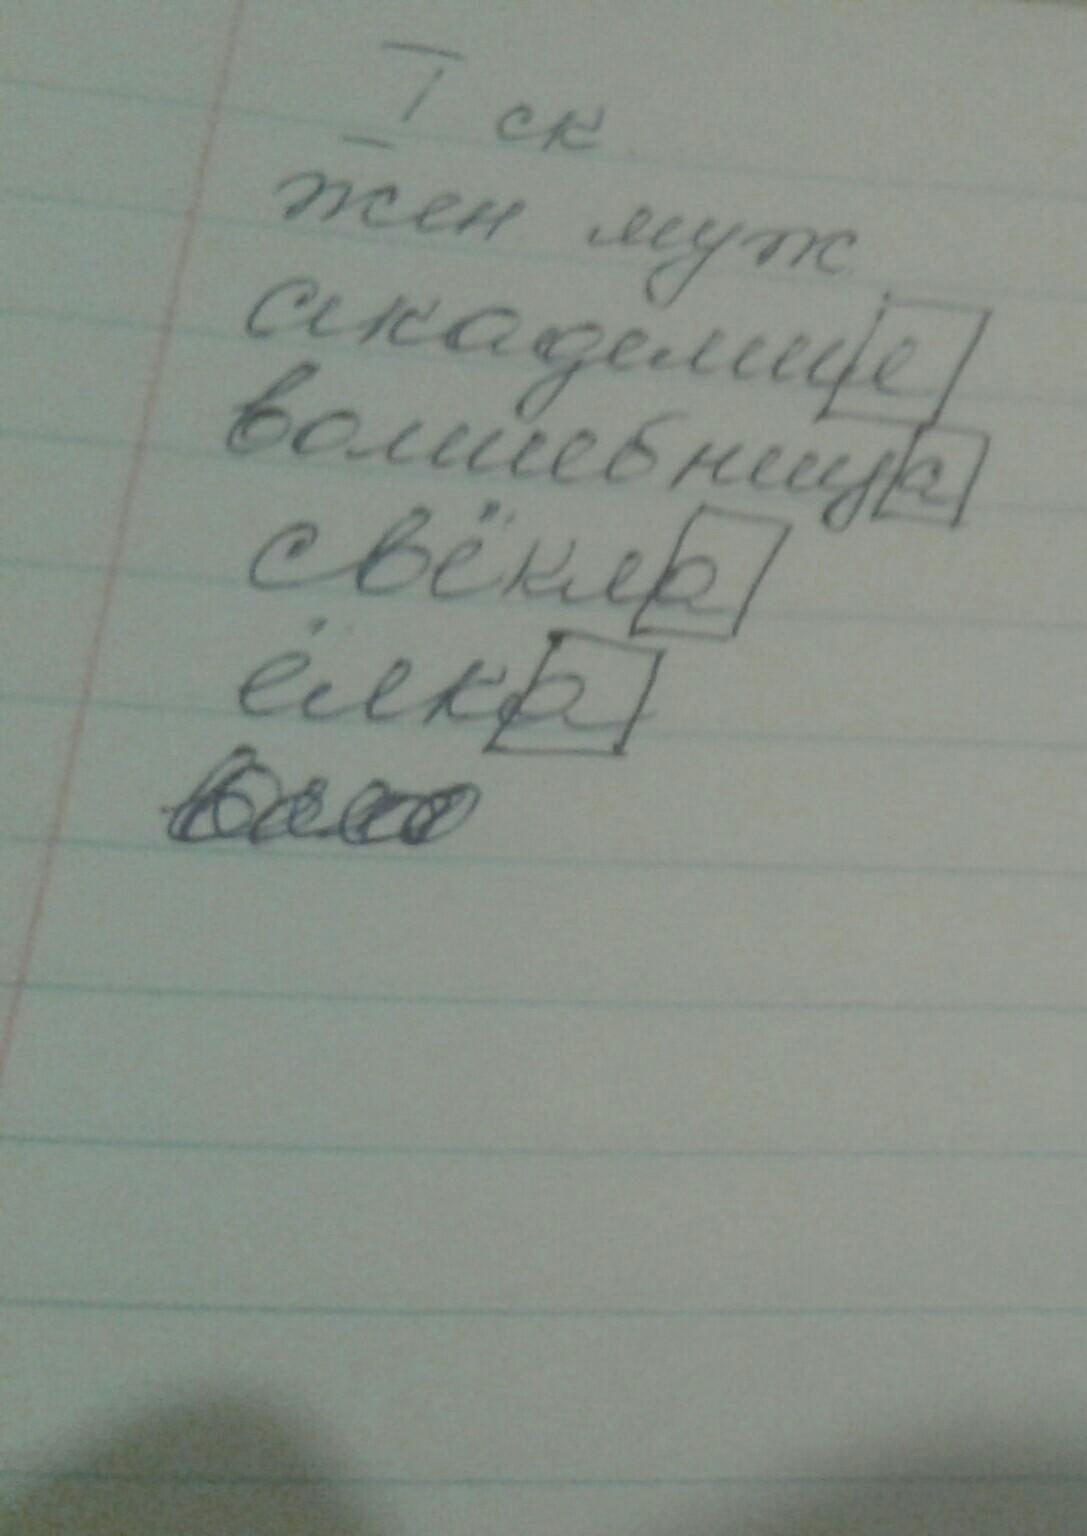 I ск
жен муж
академии е
волшебница
свёкла
ёлка